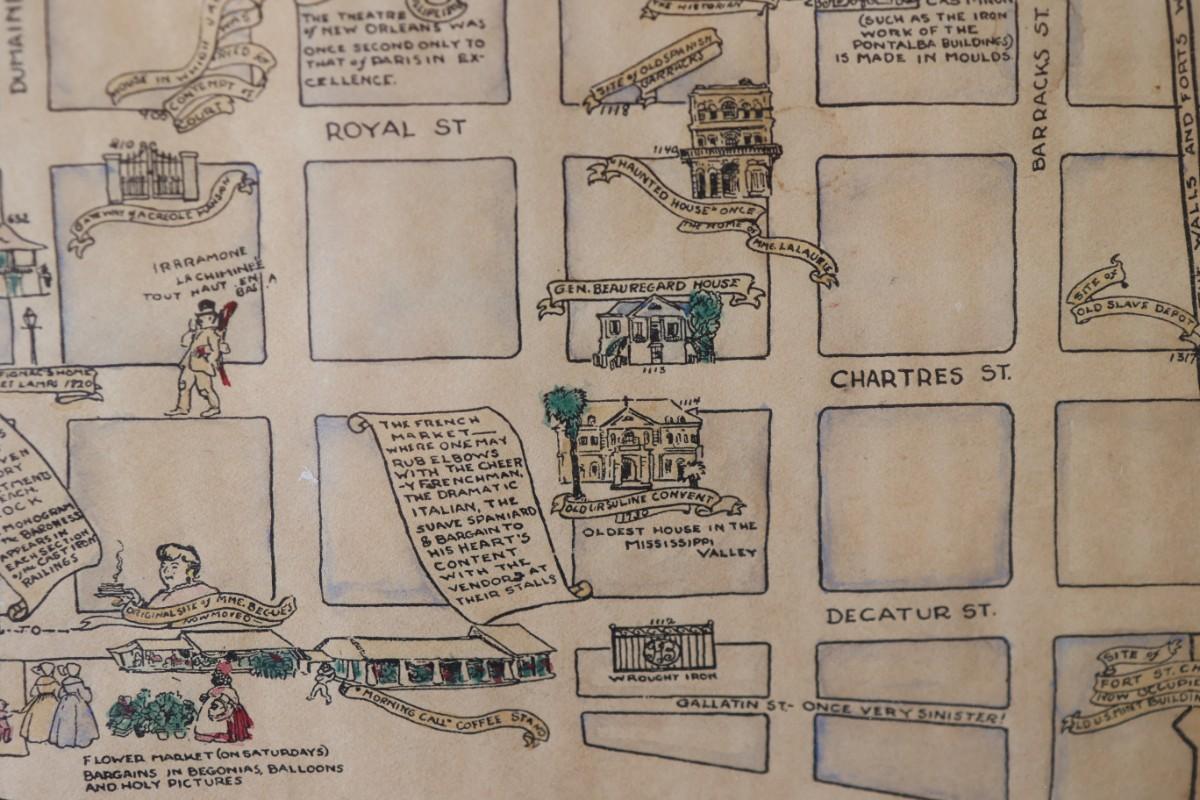 DUMAINE
HOUSE IN WHICH
WAS
CONTEMPT of
COURT
THE THEATRE
of NEW ORLEANS WAS
ONCE SECOND ONLY TO
THAT of PARIS IN EX-
CELLENCE.
THE HISTORIAN
SITE of OLD SPANISH
BARRACKS
1118
CAST IRON
(SUCH AS THE IRON
WORK OF THE
PONTALBA BUILDINGS)
IS MADE IN MOULDS
BARRACKS ST.
WALLS AND FORTS
ROYAL ST
1140
"HAUNTED HOUSE" ONCE
THE HOME of
MME. LALAURIE
GATEWAY of A CREOLE MANSION
632
IRARAMONE
LA CHIMINEE
TOUT HAUT EN A
BAS
GEN. BEAUREGARD HOUSE
1113
SITE OF
OLD SLAVE DEPOT
1317
HOME
LAMPS 1820
CHARTRES ST.
THE FRENCH
MARKET—
WHERE ONE MAY
RUB ELBOWS
WITH THE CHEER
-Y FRENCHMAN,
THE DRAMATIC
ITALIAN, THE
SUAVE SPANIARD
& BARGAIN TO
HIS HEART'S
CONTENT
WITH THE
VENDORS AT
THEIR STALLS
1114
OLD URSULINE CONVENT
1730
OLDEST HOUSE IN THE
MISSISSIPPI
VALLEY
EACH
MONOGRAM
of the BARONESS
APPEARS IN
EACH SECTION
of the CAST IRON
RAILINGS
ORIGINAL SITE of MME. BEGUE'S
NOW MOVED
TO
DECATUR ST.
1112
WROUGHT IRON
GALLATIN ST.- ONCE VERY SINISTER!
SITE of
FORT ST.
NOW OCCUPIED
OLD U.S. MINT BUILDING
"MORNING CALL" COFFEE STAND
FLOWER MARKET (ON SATURDAYS)
BARGAINS IN BEGONIAS, BALLOONS
AND HOLY PICTURES